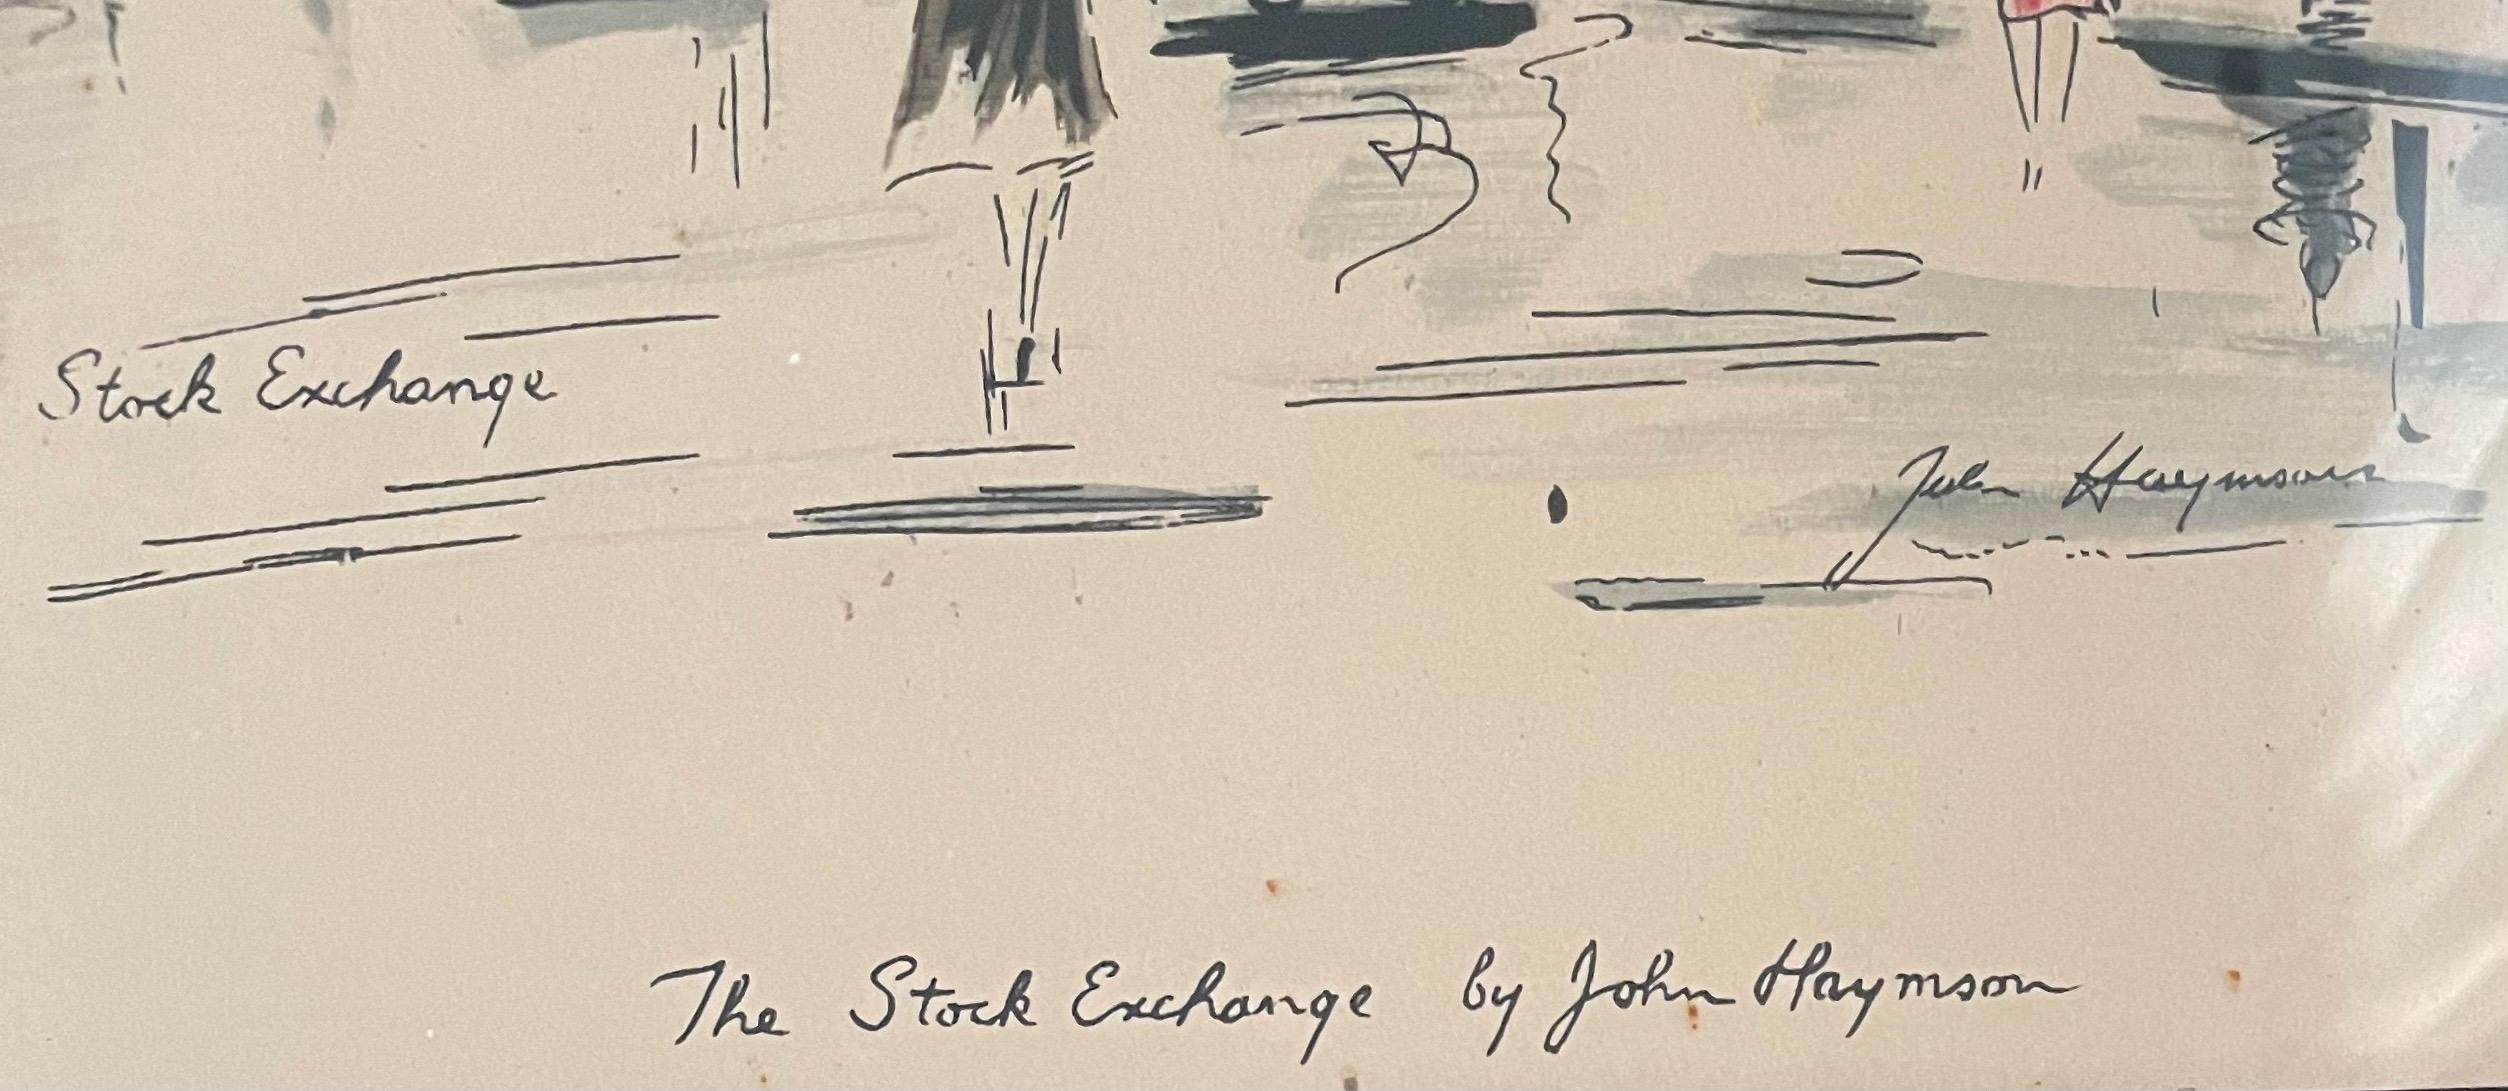 Stock Exchange
John Haymson
The Stock Exchange by John Haymson